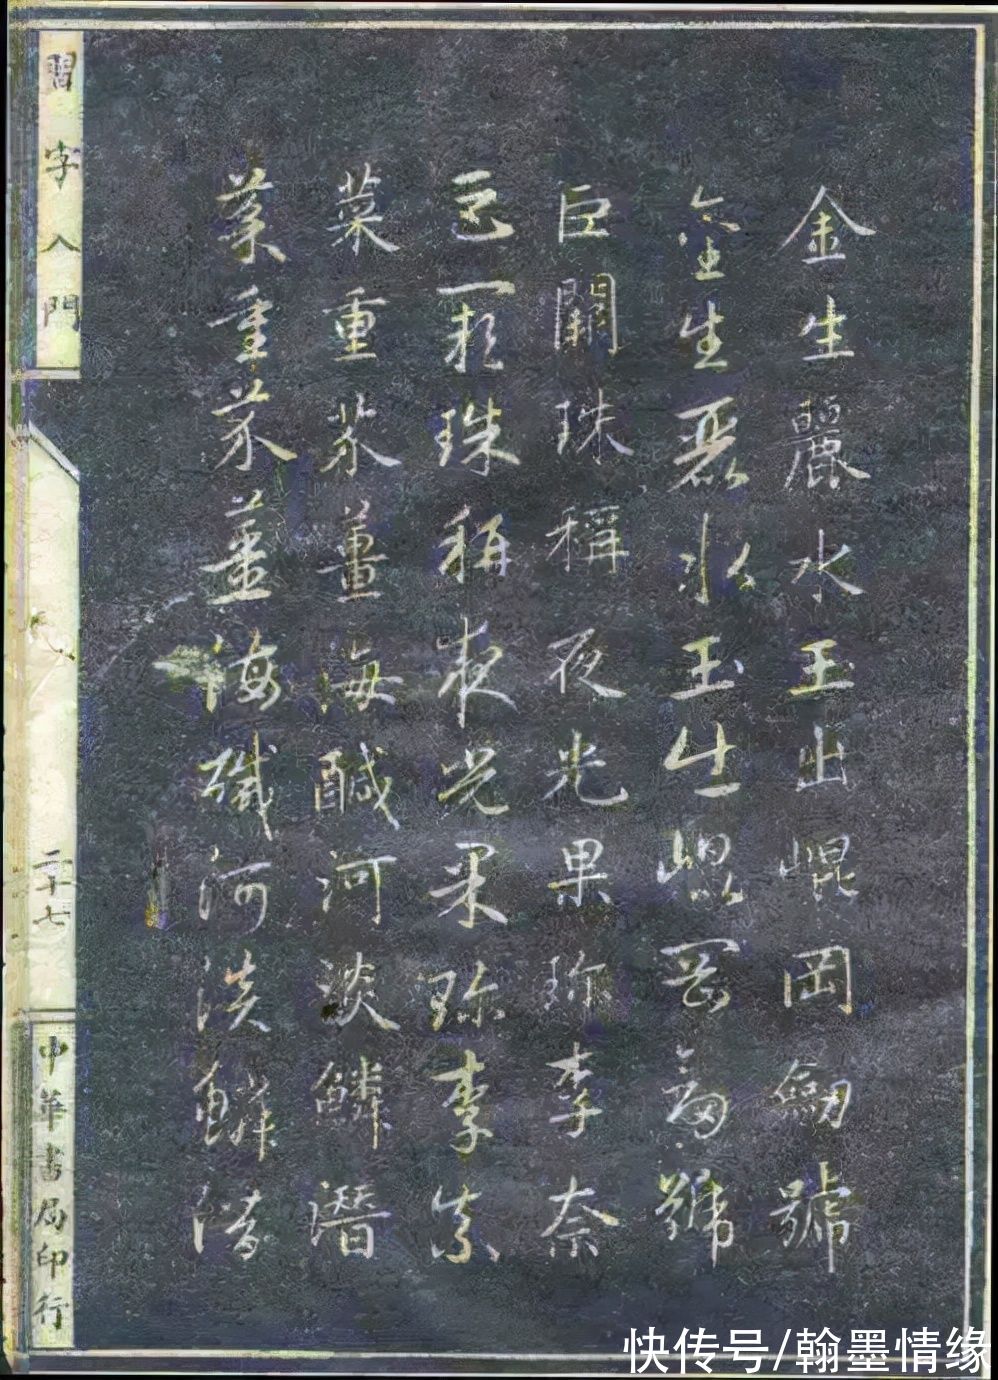 金生麗水玉出崐岡劒號
金生麗水玉出崐岡劒號
巨闕珠稱夜光果珍李柰
巨闕珠稱夜光果珍李柰
菜重芥薑海鹹河淡鱗潛
菜重芥薑海鹹河淡鱗潛
習字入門
二十七
中華書局印行
快传号/翰墨情缘